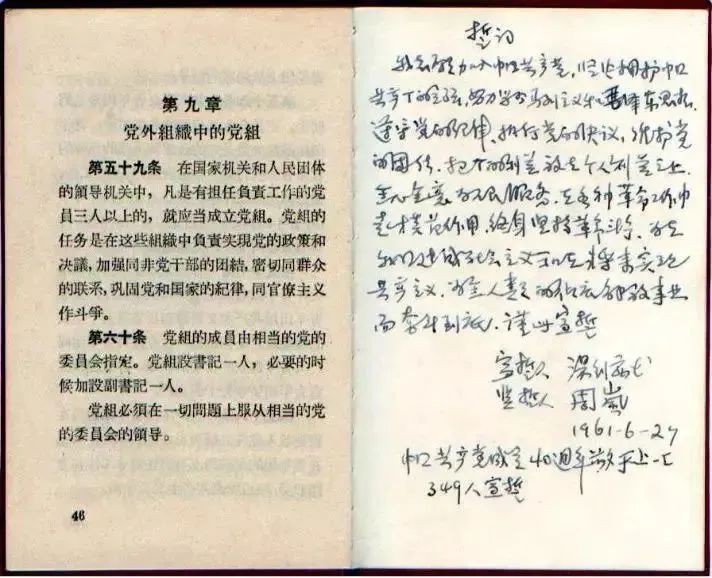 第九章
党外組織中的党組
第五十九条 在国家机关和人民团体
的領导机关中,凡是有担任負責工作的党
員三人以上的,就应当成立党組。党組的
任务是在这些組織中負責实現党的政策和
决議,加强同非党干部的团結,密切同群众
的联系,巩固党和国家的紀律,同官僚主义
作斗爭。
第六十条 党組的成員由相当的党的
委員会指定。党組設書記一人,必要的时
候加設副書記一人。
党組必須在一切問題上服从相当的党
的委員会的領导。
46
誓词
我志愿加入中国共产党,坚决拥护中国
共产党的,努力学习马列主义和毛泽东思想,
遵守党的纪律,执行党的决议,维护党
的团结,把党的利益放在个人利益之上,
全心全意为人民服务,在各种革命工作中
起模范作用,终身坚持革命斗争,为在
我们建成社会主义和在将来实现
共产主义,为全人类的彻底解放事业
而奋斗到底。谨此宣誓
宣誓人
监誓人 周
1961-6-27
中国共产党成立40週年 于上工
349人宣誓